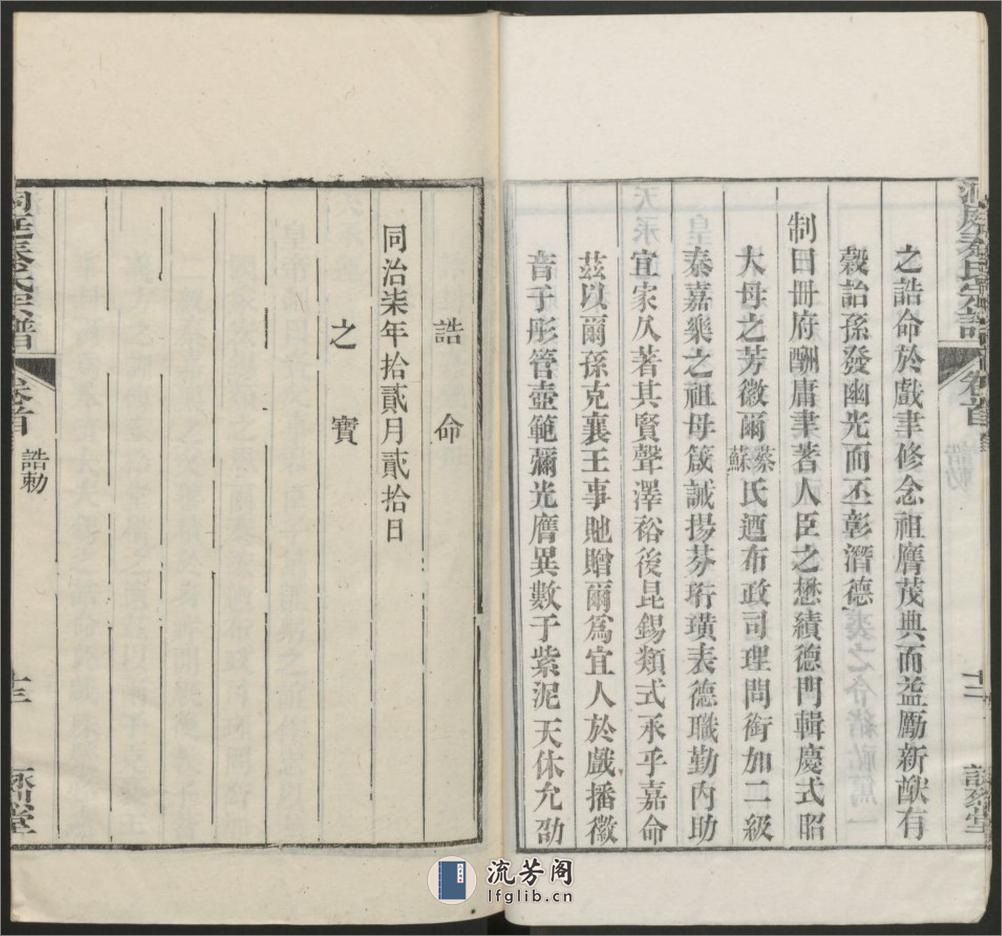 之誥命於戲聿修念祖膺茂典而益勵新猷有
穀詒孫發幽光而丕彰潛德
制曰冊府酬庸聿著人臣之懋績德門輯慶式昭
大母之芳徽爾蔡蘇氏迺布政司理問銜加二級
秦嘉樂之祖母箴誡揚芬珩璜表德職勤內助
宜家夙著其賢聲澤裕後昆錫類式承乎嘉命
茲以爾孫克襄王事貤贈爾爲宜人於戲播徽
音于彤管壺範彌光膺異數于紫泥天休允劭
誥命
同治柒年拾貳月貳拾日
之寶
洞庭秦氏宗譜
卷首
誥勅
十三
流芳阁
lfglib.cn